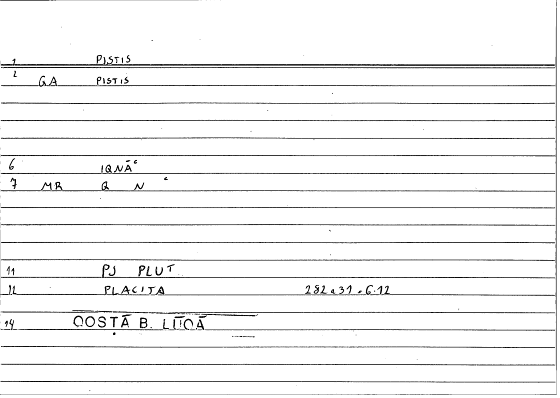 1 PISTIS
2 GA PISTIS
6 IQNĀ
7 MR Q N
11 PJ PLUT
12 PLACITA 282 a 31 . 6.12
14 OOSTĀ B.